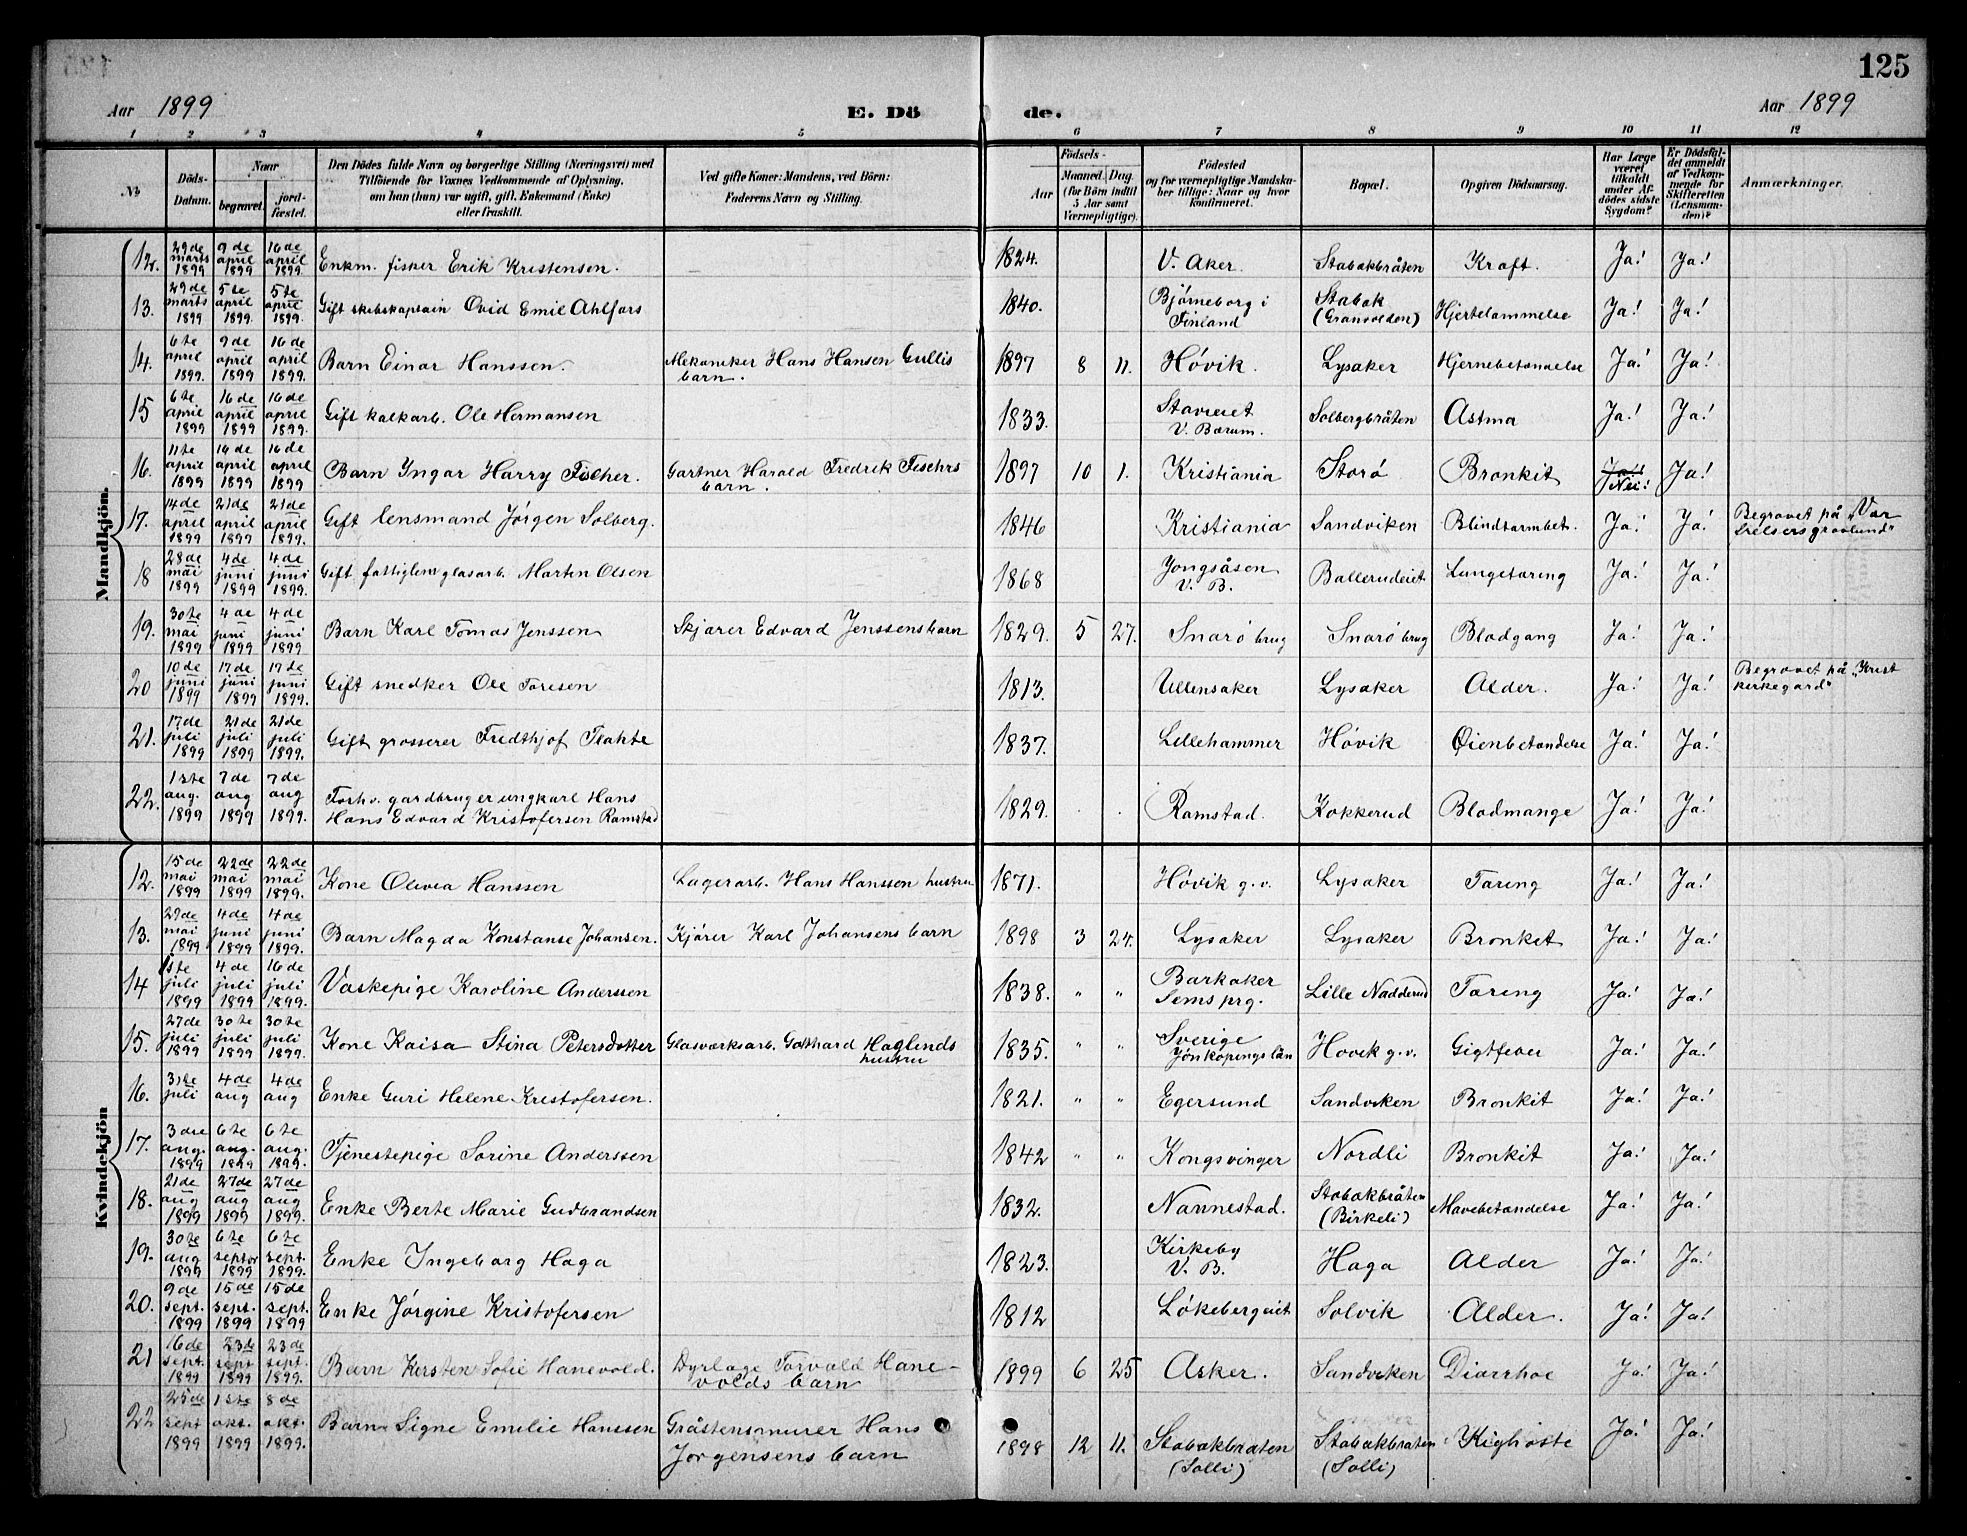 125
Aar 1899 E. Dö de. Aar 1899
1 2 3 4 5 6 7 8 9 10 11 12
№ Döds-Datum. Naar begravet. jordfæstet. Den Dödes fulde Navn og borgerlige Stilling (Næringsvei) med Tilföiende for Voxnes Vedkommende af Oplysning, om han (hun) var ugift, gift, Enkemand (Enke) eller fraskilt. Ved gifte Koner: Mandens, ved Börn: Faderens Navn og Stilling. Födsels- Aar Maaned. Dag. (for Börn indtil 5 Aar samt Værnepligtige). Födested og for værnepligtige Mandskaber tillige: Naar og hvor konfirmeret. Bopæl. Opgiven Dödsaarsag. Har Læge været tilkaldt under Afdödes sidste Sygdom? Er Dödsfaldet anmeldt af Vedkommende for Skifteretten (Lensmanden)? Anmærkninger.
Mandkjön.
12. 29de marts 1899 9de april 1899 16de april 1899. Enkm. fisker Erik Kristensen. 1824. V. Aker. Stabækbråten Kræft. Ja! Ja!
13. 29de marts 1899 5te april 1899. 5te april 1899. Gift skibskaptain Ovid Emil Ahlfors 1840. Bjørneborg i Finland Stabæk (Granvolden) Hjertelammelse Ja! Ja!
14. 6te april 1899. 9de april 1899 16de april 1899. Barn Einar Hanssen. Mekaniker Hans Hansen Gullis barn. 1897 8 11. Høvik. Lysaker Hjernebetændelse Ja! Ja!
15 6te april 1899 16de april 1899 16de april 1899. Gift kalkarb. Ole Hermansen 1833. V. Bærum. Solbergbråten Astma Ja! Ja!
16. 11te april 1899 16de april 1899 16de april 1899 Barn Yngar Harry Fischer. Gartner Harald Fredrik Fischrs barn. 1897 10 1. Kristiania Storø Bronkit Ja! Nei! Ja!
17. 14de april 1899 21de april 1899 21de april 1899 Gift lensmand Jørgen Solberg. 1846 Kristiania Sandviken Blindtarmbet. Ja! Ja! Begravet på „Vor frelsers gravlund"
18 28de mai 1899 4de juni 1899 4de juni 1899. Gift fattiglem glasarb. Martin Olsen 1868 Jongsåsen V. B. Ballerudeiet Lungetæring Ja! Ja!
19. 30te mai 1899 4de juni 1899 4de juni 1899 Barn Karl Tomas Jenssen Skjærer Edvard Jenssens barn 1829. 5 27. Snarø brug Snarø brug Blodgang Ja! Ja!
20 10de juni 1899 17de juni 1899 17de juni 1899. Gift snedker Ole Toresen 1813. Ullensaker Lysaker Alder. Ja! Ja! Begravet på „Krist kirkegard"
21. 17de juli 1899 21de juli 1899 21de juli 1899. Gift grosserer Fredthjof Plahte 1837. Lillehammer Høvik Øienbetændelse Ja! Ja!
22. 1ste aug. 1899 7de aug 1899 7de aug 1899. Forhv. gardbruger ungkarl Hans
Hans Edvard Kristofersen Ramstad 1829. Ramstad. Kokkerud Blodmangel Ja! Ja!
Kvindekjön
12. 15de mai 1899 22de mai 1899 22de mai 1899. Kone Olivia Hanssen Lagerarb. Hans Hanssen hustru 1871. Høvik g.v. Lysaker Tæring Ja! Ja!
13. 29de mai 1899 4de juni 1899 4de juni 1899. Barn Magda Konstanse Johansen. Kjører Karl Johansens barn 1898 3 24. Lysaker Lysaker Bronkit Ja! Ja!
14 1ste juli 1899 4de juli 1899 16de juli 1899. Vaskepige Karoline Anderssen 1838. " " Barkaker Sems prg. Lille Nadderud Tæring Ja! Ja!
15. 27de juli 1899 30te juli 1899 30te juli 1899. Kone Kaisa Stina Petersdotter Glasværksarb. Gotthard Haglunds hustru 1835. " " Sverige Jönköpings län Høvik g.v. Gigtfeber Ja! Ja!
16. 31te juli 4de aug 4de aug Enke Guri Helene Kristofersen. 1821. " " Egersund Sandviken Bronkit Ja! Ja!
17. 3die aug. 1899 6te aug. 1899 6te aug. 1899. Tjenestepige Sorine Anderssen 1842 " " Kongsvinger Nordli Bronkit Ja! Ja!
18. 21de aug 1899 27de aug 1899 27de aug 1899. Enke Berte Marie Gudbrandsen 1832. Nannestad. Stabækbråten (Birkeli) Mavebetændelse Ja! Ja!
19. 30te aug 1899 6te septbr 1899 6te sept. 1899. Enke Ingeborg Haga 1823. Kirkeby V. B. Haga Alder Ja! Ja!
20. 9de sept. 1899 15de sept. 1899 15de sept. 1899 Enke Jørgine Kristofersen 1812 Løkebergeiet Solvik Alder. Ja! Ja!
21 16de sept. 1899 23de sept 1899 23de sept. 1899. Barn Kirsten Sofie Hanevold. Dyrlæge Torvald Hanevolds barn 1899 6 25 Asker. Sandviken Diarrhoe Ja! Ja!
22 25de sept 1899 1ste okt. 1899 8de okt. 1899. Barn Signe Emelie Hanssen Gråstensmurer Hans Jørgensens barn 1898 12 11. Stabækbråten (Solli) Stabækbråten (Solli) Kighoste Ja! Ja!